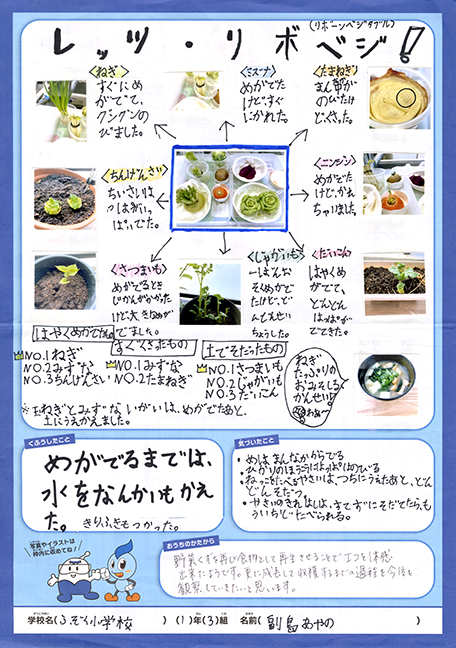 (リボーンベジタブル)
レッツ・リボベジ!
<ねぎ>
すぐにめ
がでて、
グングンの
びました。
<ミズナ>
めがでた
けど、すぐ
にかれた。
<たまねぎ>
まん中が
のびたけ
ど、くさった。
<ちんげんさい>
ちいさいは
っぱがいっ
ぱいでた。
<ニンジン>
めがでた
けど、かれ
ちゃいました
<さつまいも>
めがでるとき
じかんがかかった
けど、大きなめが
でました。
<じゃがいも>
そだめがでたけど、ど
んどんせい
ちょうした。
<だいこん>
はやくめ
がでて、
どんどん
はっぱが
でてきた。
はやくめがでたもの
NO.1 ねぎ
NO.2 みずな
NO.3 ちんげんさい
すぐくさったもの
NO.1 みずな
NO.2 たまねぎ
土でそだったもの
NO.1 さつまいも
NO.2 じゃがいも
NO.3 だいこん
ねぎ
たっぷりの
おみそしる
かんせい!
わぁ〜
※玉ねぎとみずないがいは、めがでたあと、
土にうえかえました。
くふうしたこと
めがでるまでは、
水をなんかいもかえ
た。きりふきもつかった。
気づいたこと
・めはまんなかからでる
・ひかりのほうにはっぱがのびる
・ねっこをたべるやさいは、つちにうえたあと、どん
どんそだつ。
・やさいのきれはしは、すてずにそだてたら、も
ういちどたべられる。
写真やイラストは
枠内に収めてね!
おうちのかたから
野菜くずを再び食物として再生させることでエコを体感
出来たようです。更に成長して収穫するまでの過程を今後も
観察していきたいと思います。
学校名(ふぞく小学校 ) (1)年(3)組 名前(副島あやの )